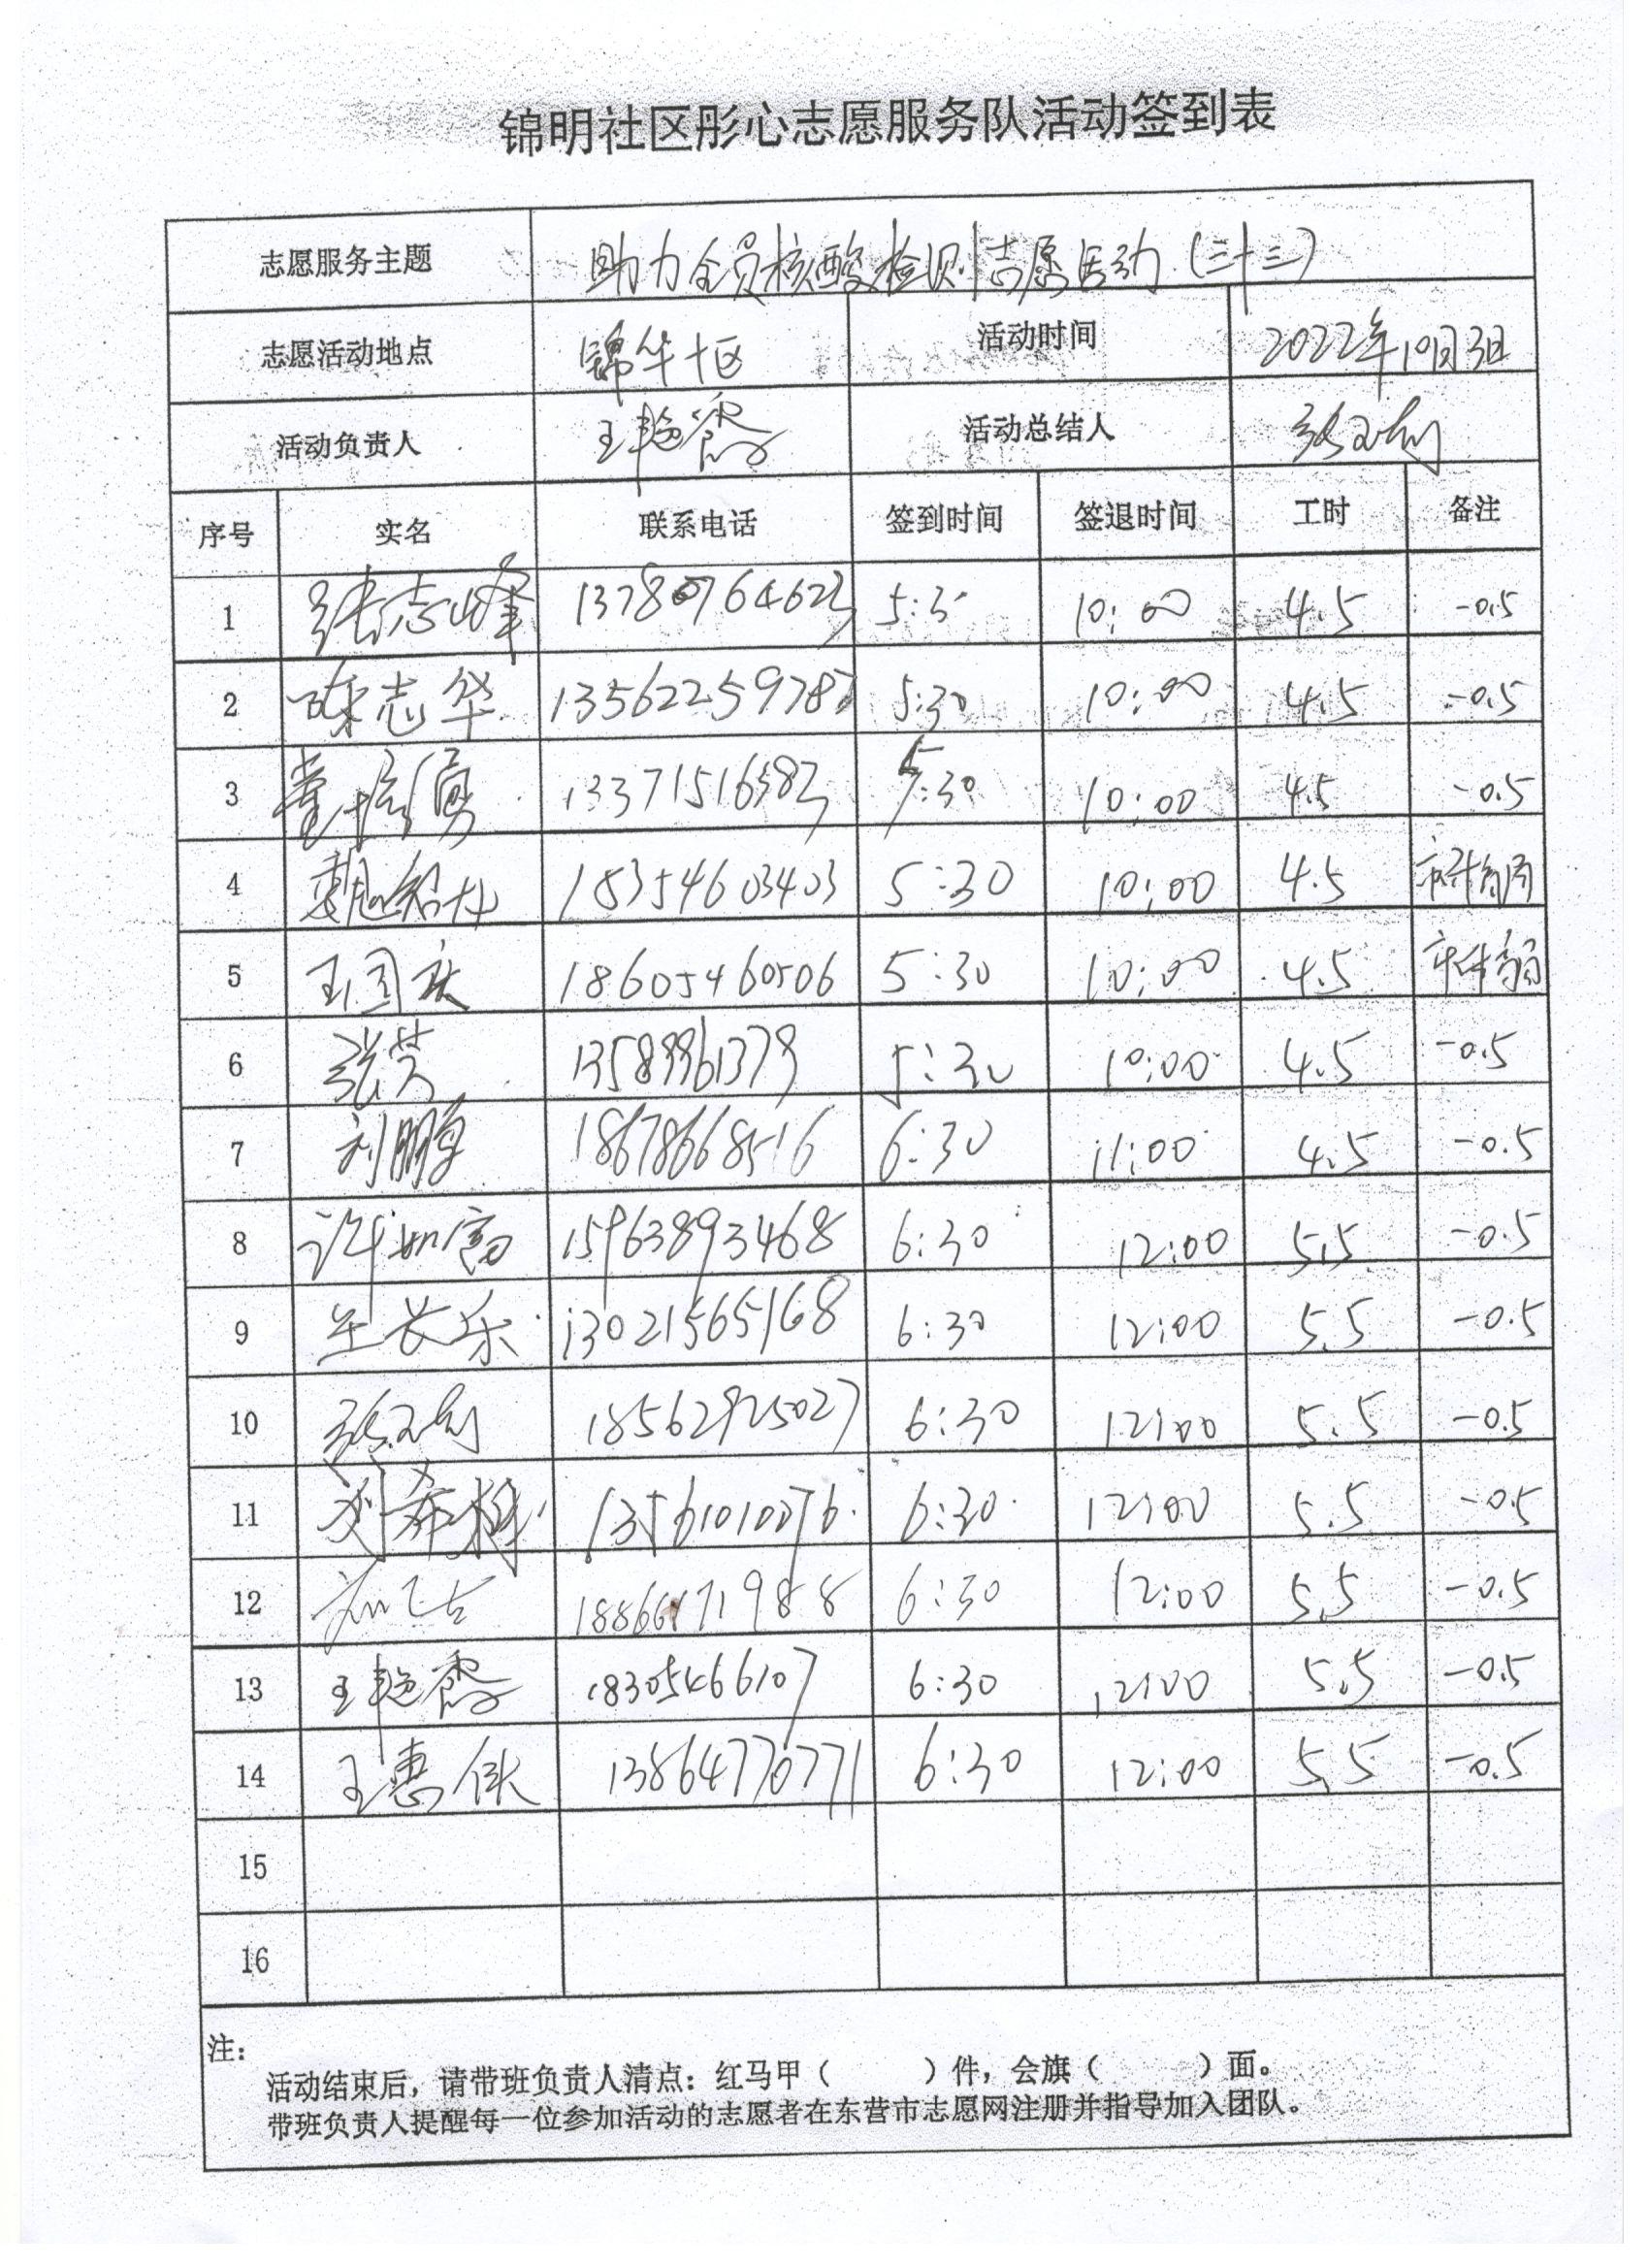 锦明社区彤心志愿服务队活动签到表
志愿服务主题 助力全员核酸检测志愿活动（三十三）
志愿活动地点 锦华十区 活动时间 2022年10月3日
活动负责人 王艳霞 活动总结人
序号 实名 联系电话 签到时间 签退时间 工时 备注
1 张志峰 13780764623 5:3 10:00 4.5 -0.5
2 陈志华 13562259787 5:30 10:00 4.5 -0.5
3 董培勇 13371516583 5:30 10:00 4.5 -0.5
4 18354603403 5:30 10:00 4.5
5 王国庆 18605460506 5:30 10:00 4.5
6 张芳 13589961379 5:30 10:00 4.5 -0.5
7 刘鹏 18678668516 6:30 11:00 4.5 -0.5
8 许如富 15963893468 6:30 12:00 5.5 -0.5
9 长乐 13021565168 6:30 12:00 5.5 -0.5
10 18562925027 6:30 12:00 5.5 -0.5
11 13561010076 6:30 12:00 5.5 -0.5
12 6:30 12:00 5.5 -0.5
13 王艳霞 18305466107 6:30 12:00 5.5 -0.5
14 王惠 13864770771 6:30 12:00 5.5 -0.5
15
16
注：
活动结束后，请带班负责人清点：红马甲（ ）件，会旗（ ）面。
带班负责人提醒每一位参加活动的志愿者在东营市志愿网注册并指导加入团队。